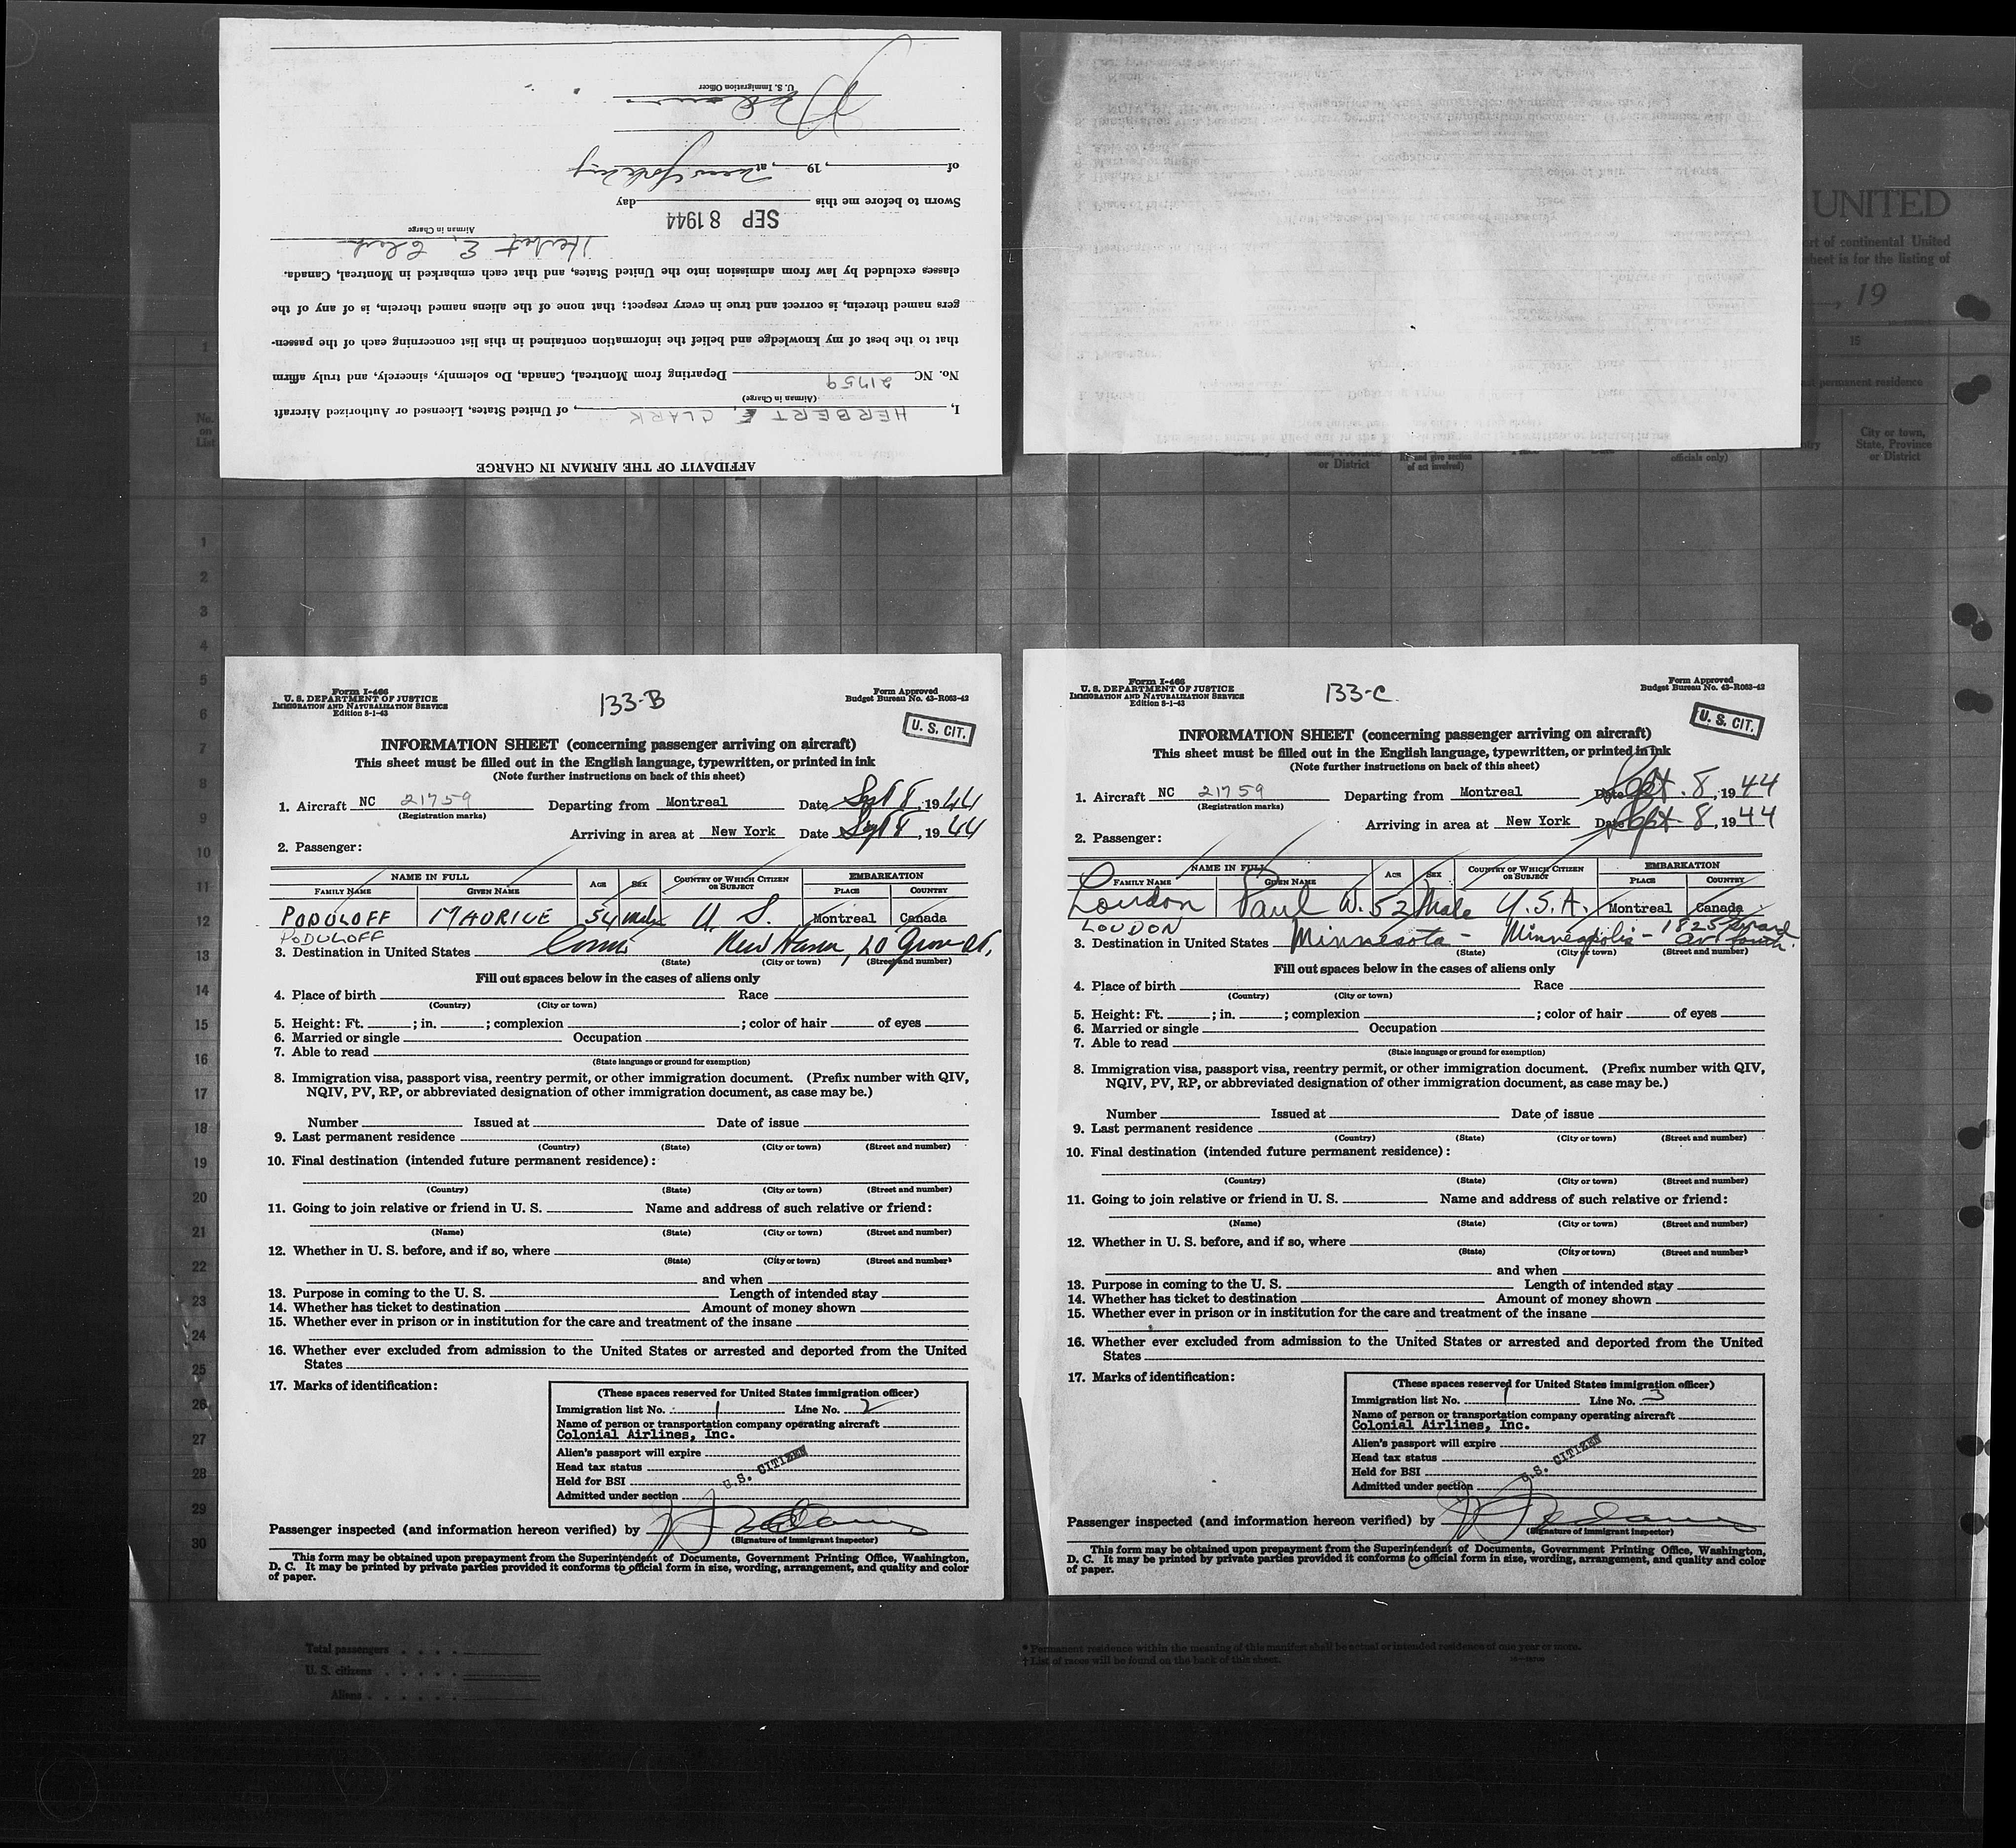 AFFIDAVIT OF THE AIRMAN IN CHARGE
I, HERBERT E. CLARK, of United States, Licensed or Authorized Aircraft
(Airman in Charge)
No. NC 21759 Departing from Montreal, Canada, Do solemnly, sincerely, and truly affirm
that to the best of my knowledge and belief the information contained in this list concerning each of the passen-
gers named therein, is correct and true in every respect; that none of the aliens named therein, is of any of the
classes excluded by law from admission into the United States, and that each embarked in Montreal, Canada.
Herbert E. Clark
Airman in Charge
Sworn to before me this SEP 8 1944 day
of , 19 , at New York
U. S. Immigration Officer
UNITED
ort of continental United
sheet is for the listing of
, 19
15
permanent residence
No. on List
or District
officials only)
City or town, State, Province or District
1
1
2
3
4
5
6
7
8
9
10
11
12
13
14
15
16
17
18
19
20
21
22
23
24
25
26
27
28
29
30
Form I-466
U. S. DEPARTMENT OF JUSTICE
IMMIGRATION AND NATURALIZATION SERVICE
Edition 8-1-43
133-B
Form Approved
Budget Bureau No. 43-R063-42
U. S. CIT.
INFORMATION SHEET (concerning passenger arriving on aircraft)
This sheet must be filled out in the English language, typewritten, or printed in ink
(Note further instructions on back of this sheet)
1. Aircraft NC 21759 Departing from Montreal Date Sept 8, 1944
(Registration marks)
Arriving in area at New York Date Sept 8, 1944
2. Passenger:
NAME IN FULL AGE SEX COUNTRY OF WHICH CITIZEN OR SUBJECT EMBARKATION
FAMILY NAME GIVEN NAME PLACE COUNTRY
PODULOFF MAURICE 54 Male U. S. Montreal Canada
PODULOFF
3. Destination in United States Conn New Haven, 20 Grove St,
(State) (City or town) (Street and number)
Fill out spaces below in the cases of aliens only
4. Place of birth Race
(Country) (City or town)
5. Height: Ft. ; in. ; complexion ; color of hair of eyes
6. Married or single Occupation
7. Able to read
(State language or ground for exemption)
8. Immigration visa, passport visa, reentry permit, or other immigration document. (Prefix number with QIV,
NQIV, PV, RP, or abbreviated designation of other immigration document, as case may be.)
Number Issued at Date of issue
9. Last permanent residence
(Country) (State) (City or town) (Street and number)
10. Final destination (intended future permanent residence):
(Country) (State) (City or town) (Street and number)
11. Going to join relative or friend in U. S. Name and address of such relative or friend:
(Name) (State) (City or town) (Street and number)
12. Whether in U. S. before, and if so, where
(State) (City or town) (Street and number)
and when
13. Purpose in coming to the U. S. Length of intended stay
14. Whether has ticket to destination Amount of money shown
15. Whether ever in prison or in institution for the care and treatment of the insane
16. Whether ever excluded from admission to the United States or arrested and deported from the United
States
17. Marks of identification:
(These spaces reserved for United States immigration officer)
Immigration list No. 1 Line No. 2
Name of person or transportation company operating aircraft
Colonial Airlines, Inc.
Alien's passport will expire
Head tax status
Held for BSI
U.S. CITIZEN
Admitted under section
Passenger inspected (and information hereon verified) by
(Signature of immigrant inspector)
This form may be obtained upon prepayment from the Superintendent of Documents, Government Printing Office, Washington,
D. C. It may be printed by private parties provided it conforms to official form in size, wording, arrangement, and quality and color
of paper.
Form I-466
U. S. DEPARTMENT OF JUSTICE
IMMIGRATION AND NATURALIZATION SERVICE
Edition 8-1-43
133-C
Form Approved
Budget Bureau No. 43-R063-42
U. S. CIT.
INFORMATION SHEET (concerning passenger arriving on aircraft)
This sheet must be filled out in the English language, typewritten, or printed in ink
(Note further instructions on back of this sheet)
1. Aircraft NC 21759 Departing from Montreal Date Sept. 8, 1944
(Registration marks)
Arriving in area at New York Date Sept 8, 1944
2. Passenger:
NAME IN FULL AGE SEX COUNTRY OF WHICH CITIZEN OR SUBJECT EMBARKATION
FAMILY NAME GIVEN NAME PLACE COUNTRY
Loudon Paul W. 52 Male U.S.A. Montreal Canada
LOUDON
3. Destination in United States Minnesota - Minneapolis - 1825 Girard Av. South.
(State) (City or town) (Street and number)
Fill out spaces below in the cases of aliens only
4. Place of birth Race
(Country) (City or town)
5. Height: Ft. ; in. ; complexion ; color of hair of eyes
6. Married or single Occupation
7. Able to read
(State language or ground for exemption)
8. Immigration visa, passport visa, reentry permit, or other immigration document. (Prefix number with QIV,
NQIV, PV, RP, or abbreviated designation of other immigration document, as case may be.)
Number Issued at Date of issue
9. Last permanent residence
(Country) (State) (City or town) (Street and number)
10. Final destination (intended future permanent residence):
(Country) (State) (City or town) (Street and number)
11. Going to join relative or friend in U. S. Name and address of such relative or friend:
(Name) (State) (City or town) (Street and number)
12. Whether in U. S. before, and if so, where
(State) (City or town) (Street and number)
and when
13. Purpose in coming to the U. S. Length of intended stay
14. Whether has ticket to destination Amount of money shown
15. Whether ever in prison or in institution for the care and treatment of the insane
16. Whether ever excluded from admission to the United States or arrested and deported from the United
States
17. Marks of identification:
(These spaces reserved for United States immigration officer)
Immigration list No. 1 Line No. 3
Name of person or transportation company operating aircraft
Colonial Airlines, Inc.
Alien's passport will expire
Head tax status
Held for BSI
U.S. CITIZEN
Admitted under section
Passenger inspected (and information hereon verified) by
(Signature of immigrant inspector)
This form may be obtained upon prepayment from the Superintendent of Documents, Government Printing Office, Washington,
D. C. It may be printed by private parties provided it conforms to official form in size, wording, arrangement, and quality and color
of paper.
Total passengers
U. S. citizens
Aliens
* Permanent residence within the meaning of this manifest shall be actual or intended residence of one year or more.
† List of races will be found on the back of this sheet.